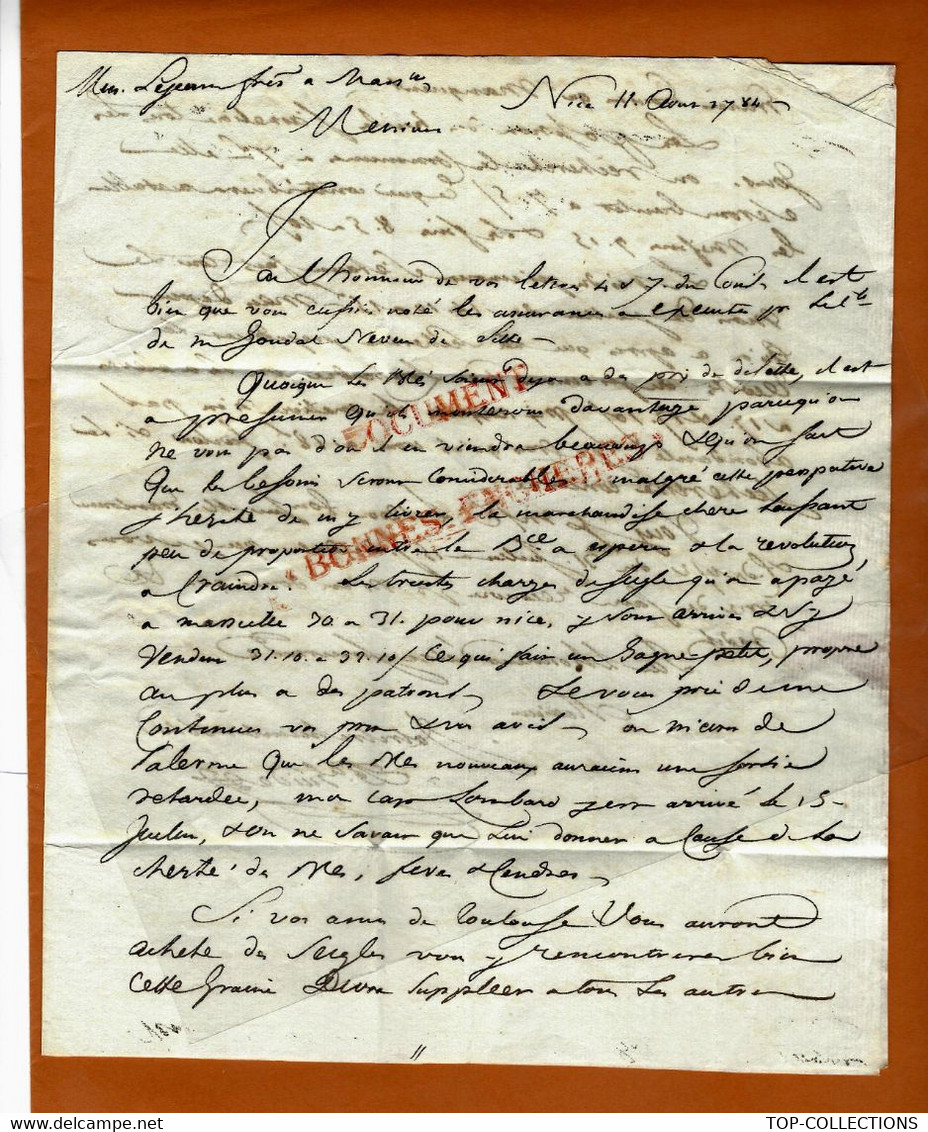 Mrs. Lejean frès a Marslle
Nice 11 Aoust 1784
Messieurs
J'ai l'honneur de vos lettres 4 & 7. du Cout. il est
bien que vous eussiés noté les assurances
de mr Goudal Neveu de Sette
Quoique les blés soient deja a des prix de disette, il est
a presumer qu'ils monteront davantage parcequ'on
ne voit pas d'où il en viendra beaucoup & qu'on sait
que les besoins seront considerables. malgré cette perspective
j'hesite de m'y livrer, la marchandise chere laissant
peu de proportion entre le Bce a esperer & la revolution
a craindre. Les trentes charges de segle qu'on a payé
a marseille 30 a 31. pour nice, y sont arrivés & s'y
vendent 31.10. a 32.10/ ce qui fait un Gagne-petit, propre
au plus a des patrons. Je vous prie de me
Continuer vos prix & vos avis. on m'ecrit de
Palerme que les blés nouveaux auraient une sortie
retardée, mon cap Lombard y est arrivé le 15
Juillet, & on ne savait que lui donner a Cause de la
cherté des blés, feves &
Si vos amis de Toulouse Vous auront
acheté des seigles vous y rencontrerez bien
Cette Graine devra suppléer a tous les autres
DOCUMENT
BONNES-ENCHERES
TOP-COLLECTIONS